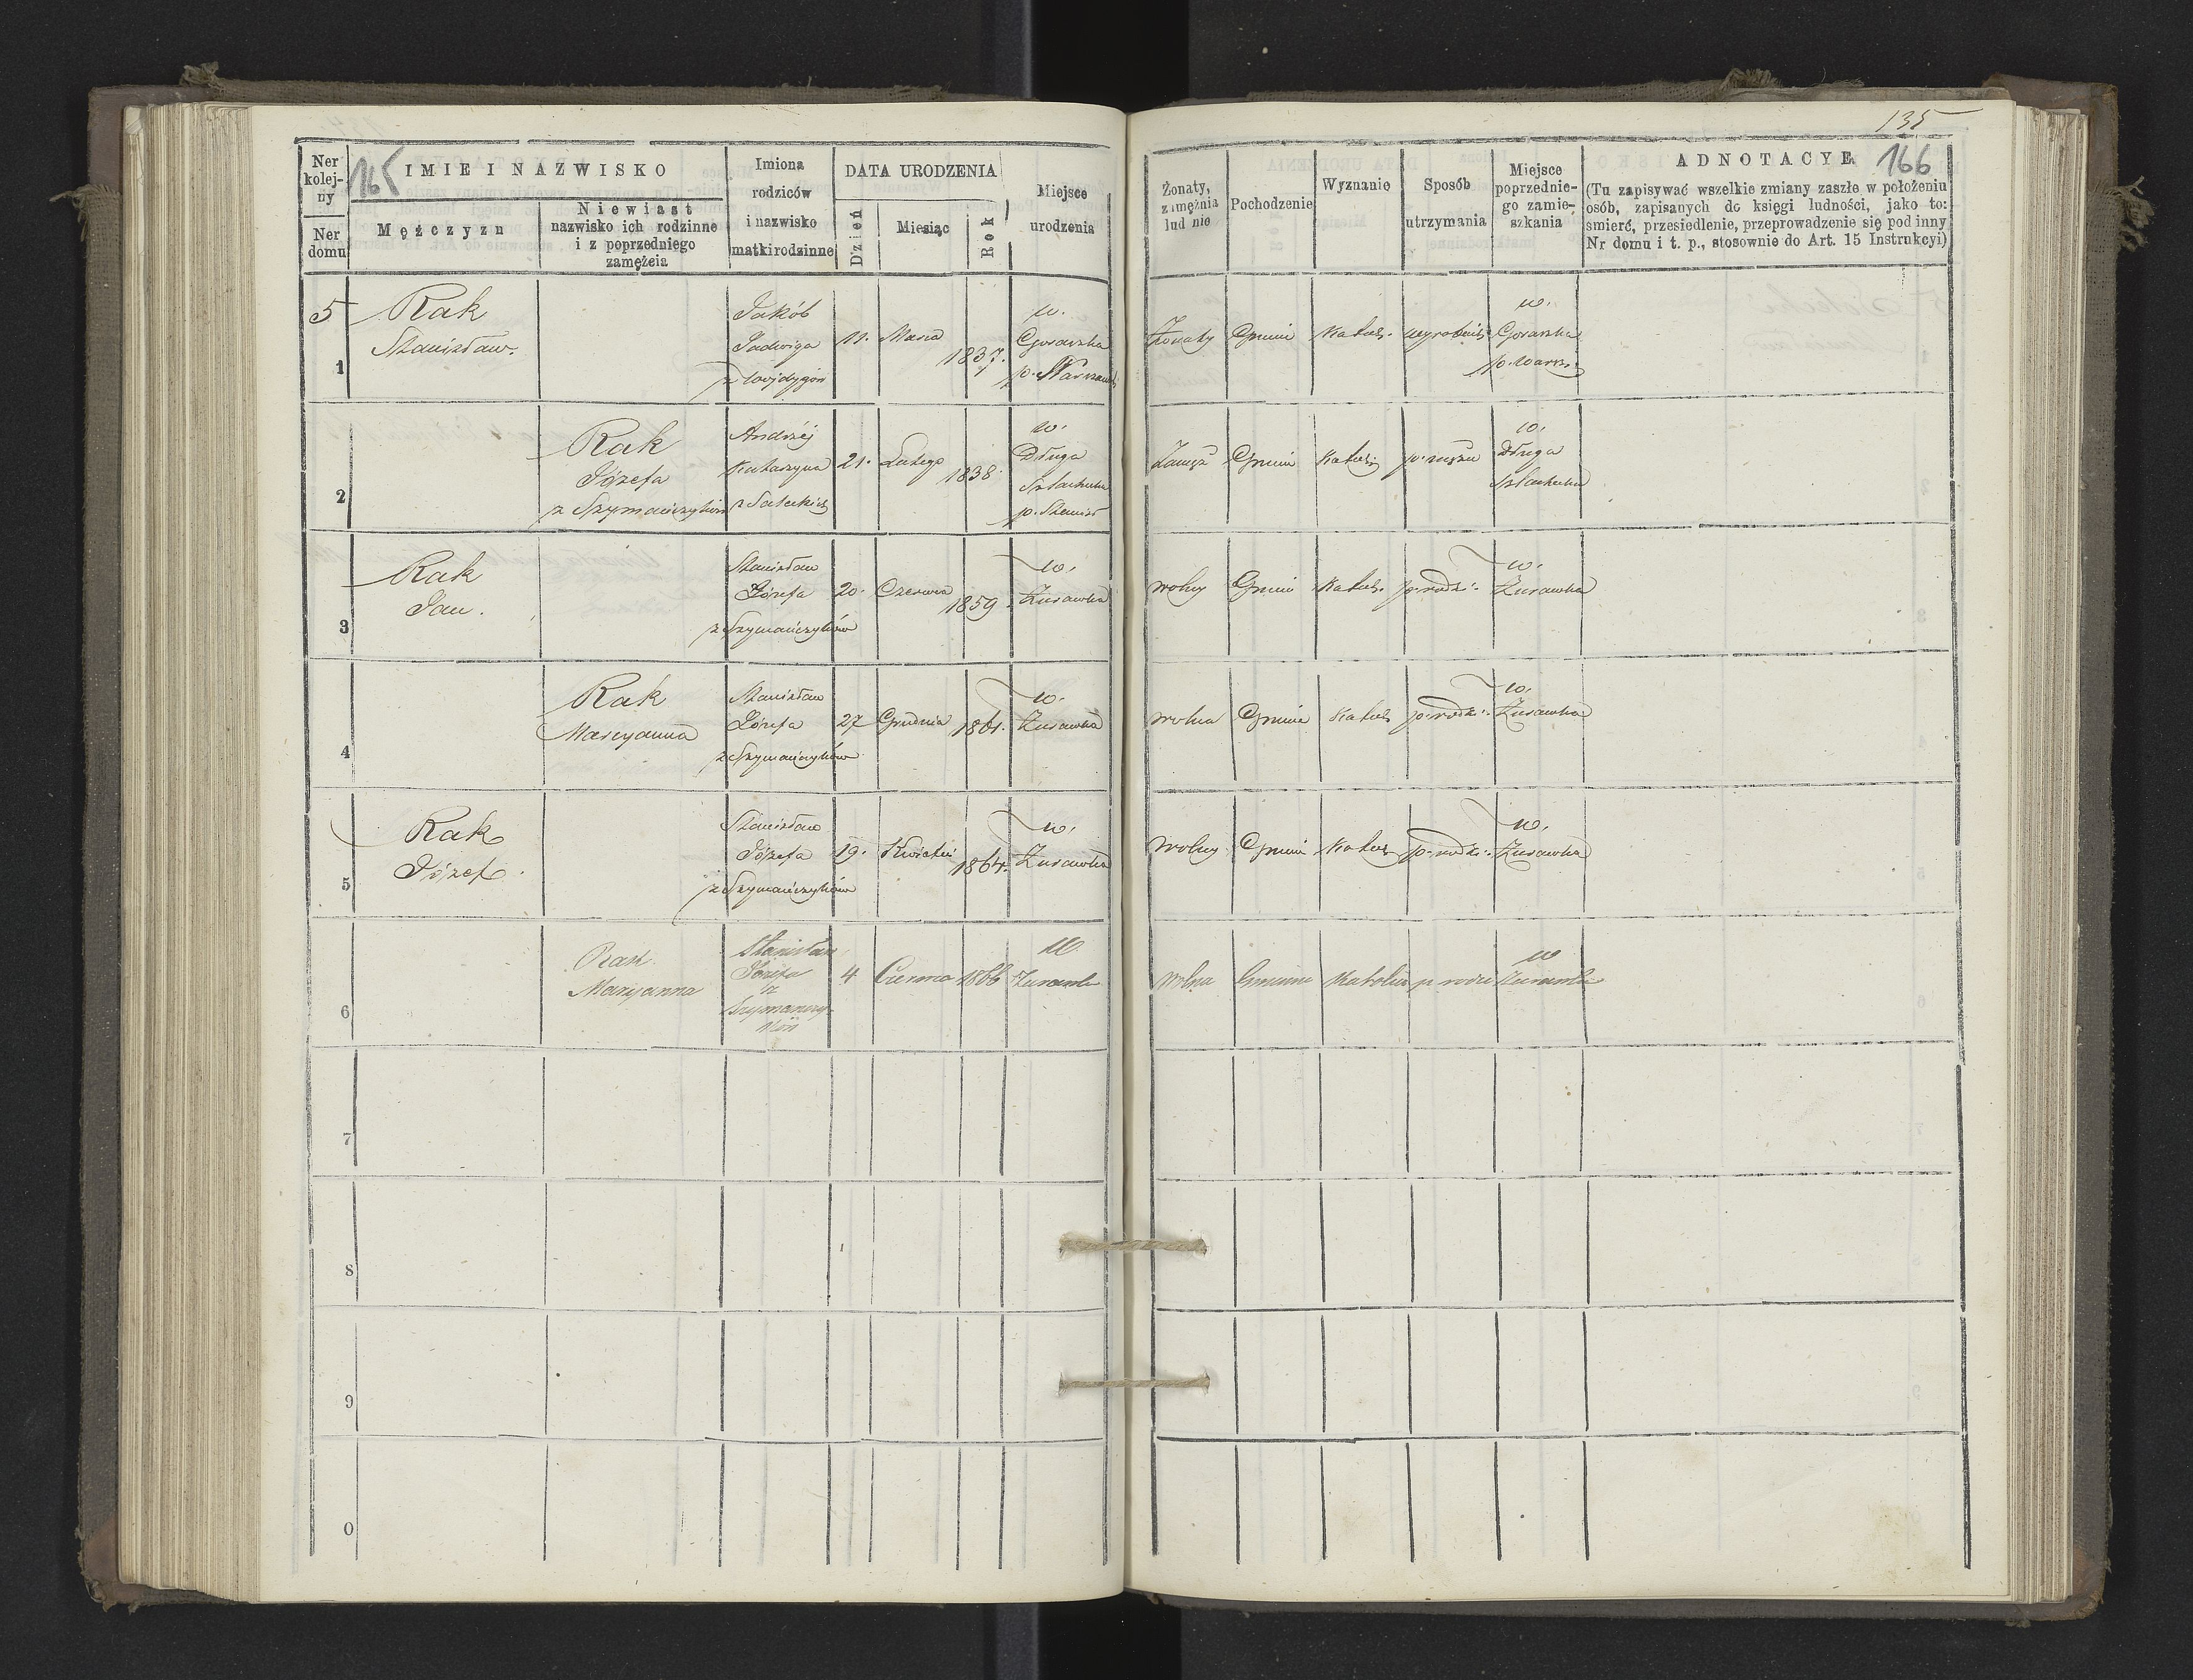 135
165
166
Ner kolejny
Ner domu
IMIE I NAZWISKO
Mężczyzn
Niewiast
nazwisko ich rodzinne
i z poprzedniego
zamęźcia
Imiona
rodziców
i nazwisko
matki rodzinne
DATA URODZENIA
Dzień
Miesiąc
Rok
Miejsce
urodzenia
Żonaty,
zamężnia
lud nie
Pochodzenie
Wyznanie
Sposób
utrzymania
Miejsce
poprzednie-
go zamie-
szkania
ADNOTACYE
(Tu zapisywać wszelkie zmiany zaszłe w położeniu
osób, zapisanych do księgi ludności, jako to:
smierć, przesiedlenie, przeprowadzenie się pod inny
Nr domu i t. p., stosownie do Art. 15 Instrukcyi)
5
1
Rak
Stanisław.
Jakób
Jadwiga
11. Marca 1837.
w.
Goraszka
Żonaty Gmin Katol. wyrobnik
w.
Goraszka
p. Warsz.
2
Rak
Józefa
z Szymańczyków
Andrzéj
Katarzyna
z Sateckich
21. Lutego 1838
w.
Długa
Szlachecka
Zamęż Gmin Katol. p. mężu
w.
Długa
Szlachecka
3
Rak
Jan.
Stanisław
Józefa
z Szymańczyków
20. Czerwca 1859
w.
Żurawka
wolny Gmin Katol. p. rodz:
w.
Żurawka
4
Rak
Maryanna
Stanisław
Józefa
z Szymańczyków
27 Grudnia 1861.
w.
Żurawka
wolna Gmin Katol p. rodz:
w.
Żurawka
5
Rak
Józef.
Stanisław
Józefa
z Szymańczyków
19. Kwietni 1864.
w.
Żurawka
wolny Gmin Katol p. rodz:
w.
Żurawka
6
Rak
Maryanna
Stanisław
Józefa
z
Szymańczy-
ków
4 Czerwca 1866
w
Żurawka
Wolna Gminna Katolic p rodzi
w
Żurawka
7
8
9
0